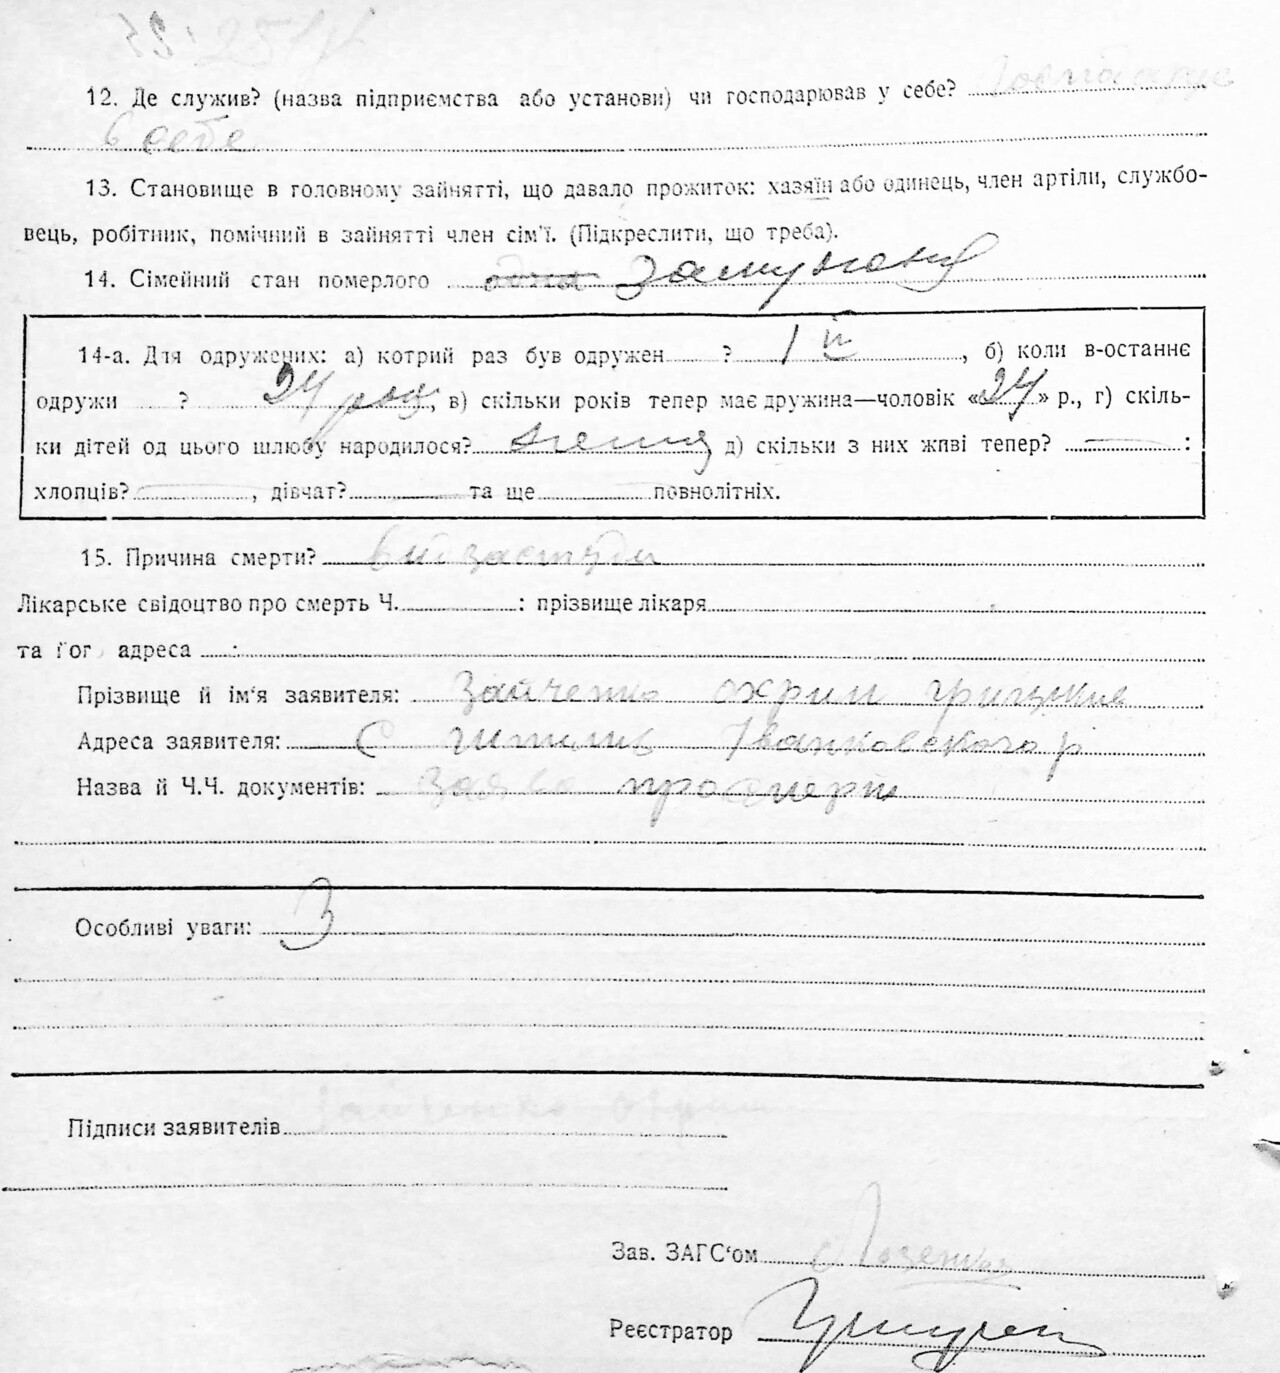 12. Де служив? (назва підприємства або установи) чи господарював у себе?
в себе
13. Становище в головному зайнятті, що давало прожиток: хазяїн або одинець, член артіли, службо-
вець, робітник, помічний в зайнятті член сім'ї. (Підкреслити, що треба).
14. Сімейний стан померлого одна замужня
14-а. Для одружених: а) котрий раз був одружен ? 1 й, б) коли в-останнє
одружи ? 24 рок, в) скільки років тепер має дружина—чоловік «24» р., г) скіль-
ки дітей од цього шлюбу народилося? д) скільки з них живі тепер? :
хлопців? , дівчат? та ще повнолітніх.
15. Причина смерти? від застуди
Лікарське свідоцтво про смерть Ч. : прізвище лікаря
та його адреса :
Прізвище й ім'я заявителя: Зайченко Охрим
Адреса заявителя: С Іванковского р
Назва й Ч.Ч. документів: заява про смерть
Особливі уваги: З
Підписи заявителів Зайченко Охрим
Зав. ЗАГС'ом
Реєстратор